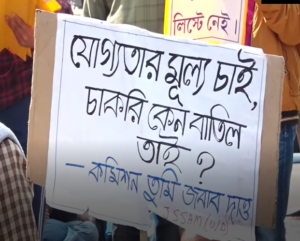 লিস্টে নেই।
যোগ্যতার মূল্য চাই,
চাকরি কেন বাতিল
তাই ?
– কমিশন তুমি জবাব দাও